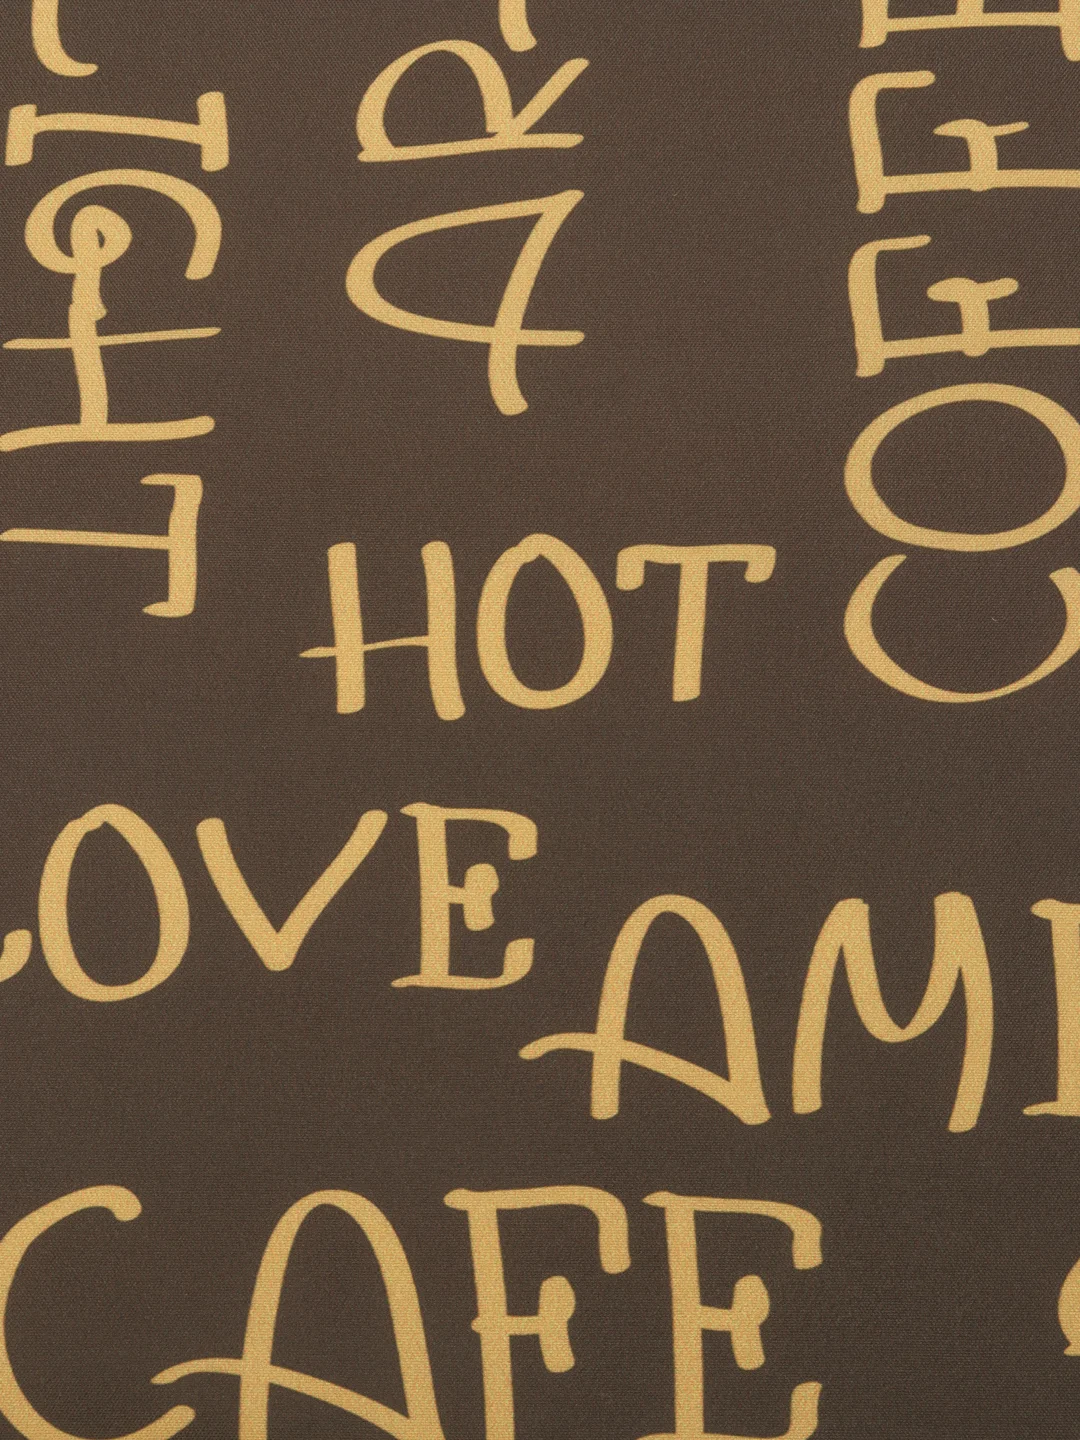 IGHT
AR
COFFE
HOT
OVE
AM
CAFE